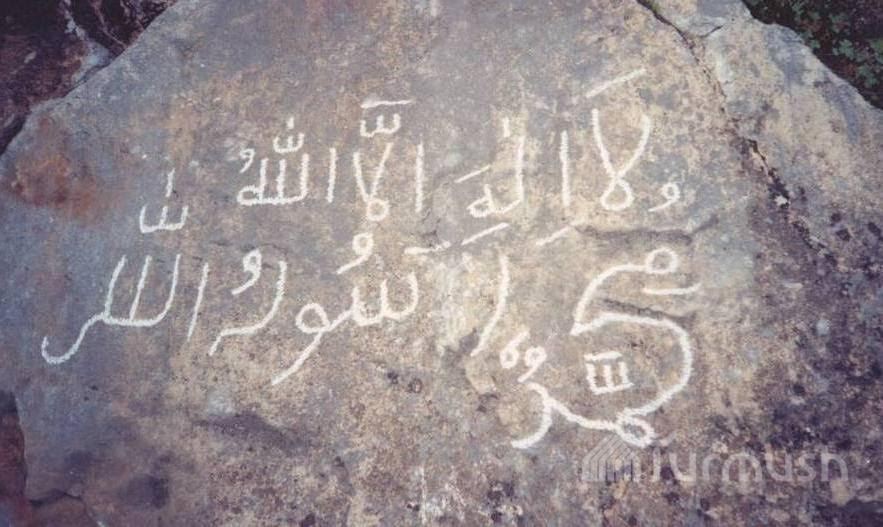 لَا اِلٰهَ اِلَّا اللّٰهُ
مُحَمَّدٌ رَسُولُ اللّٰه
Turmush